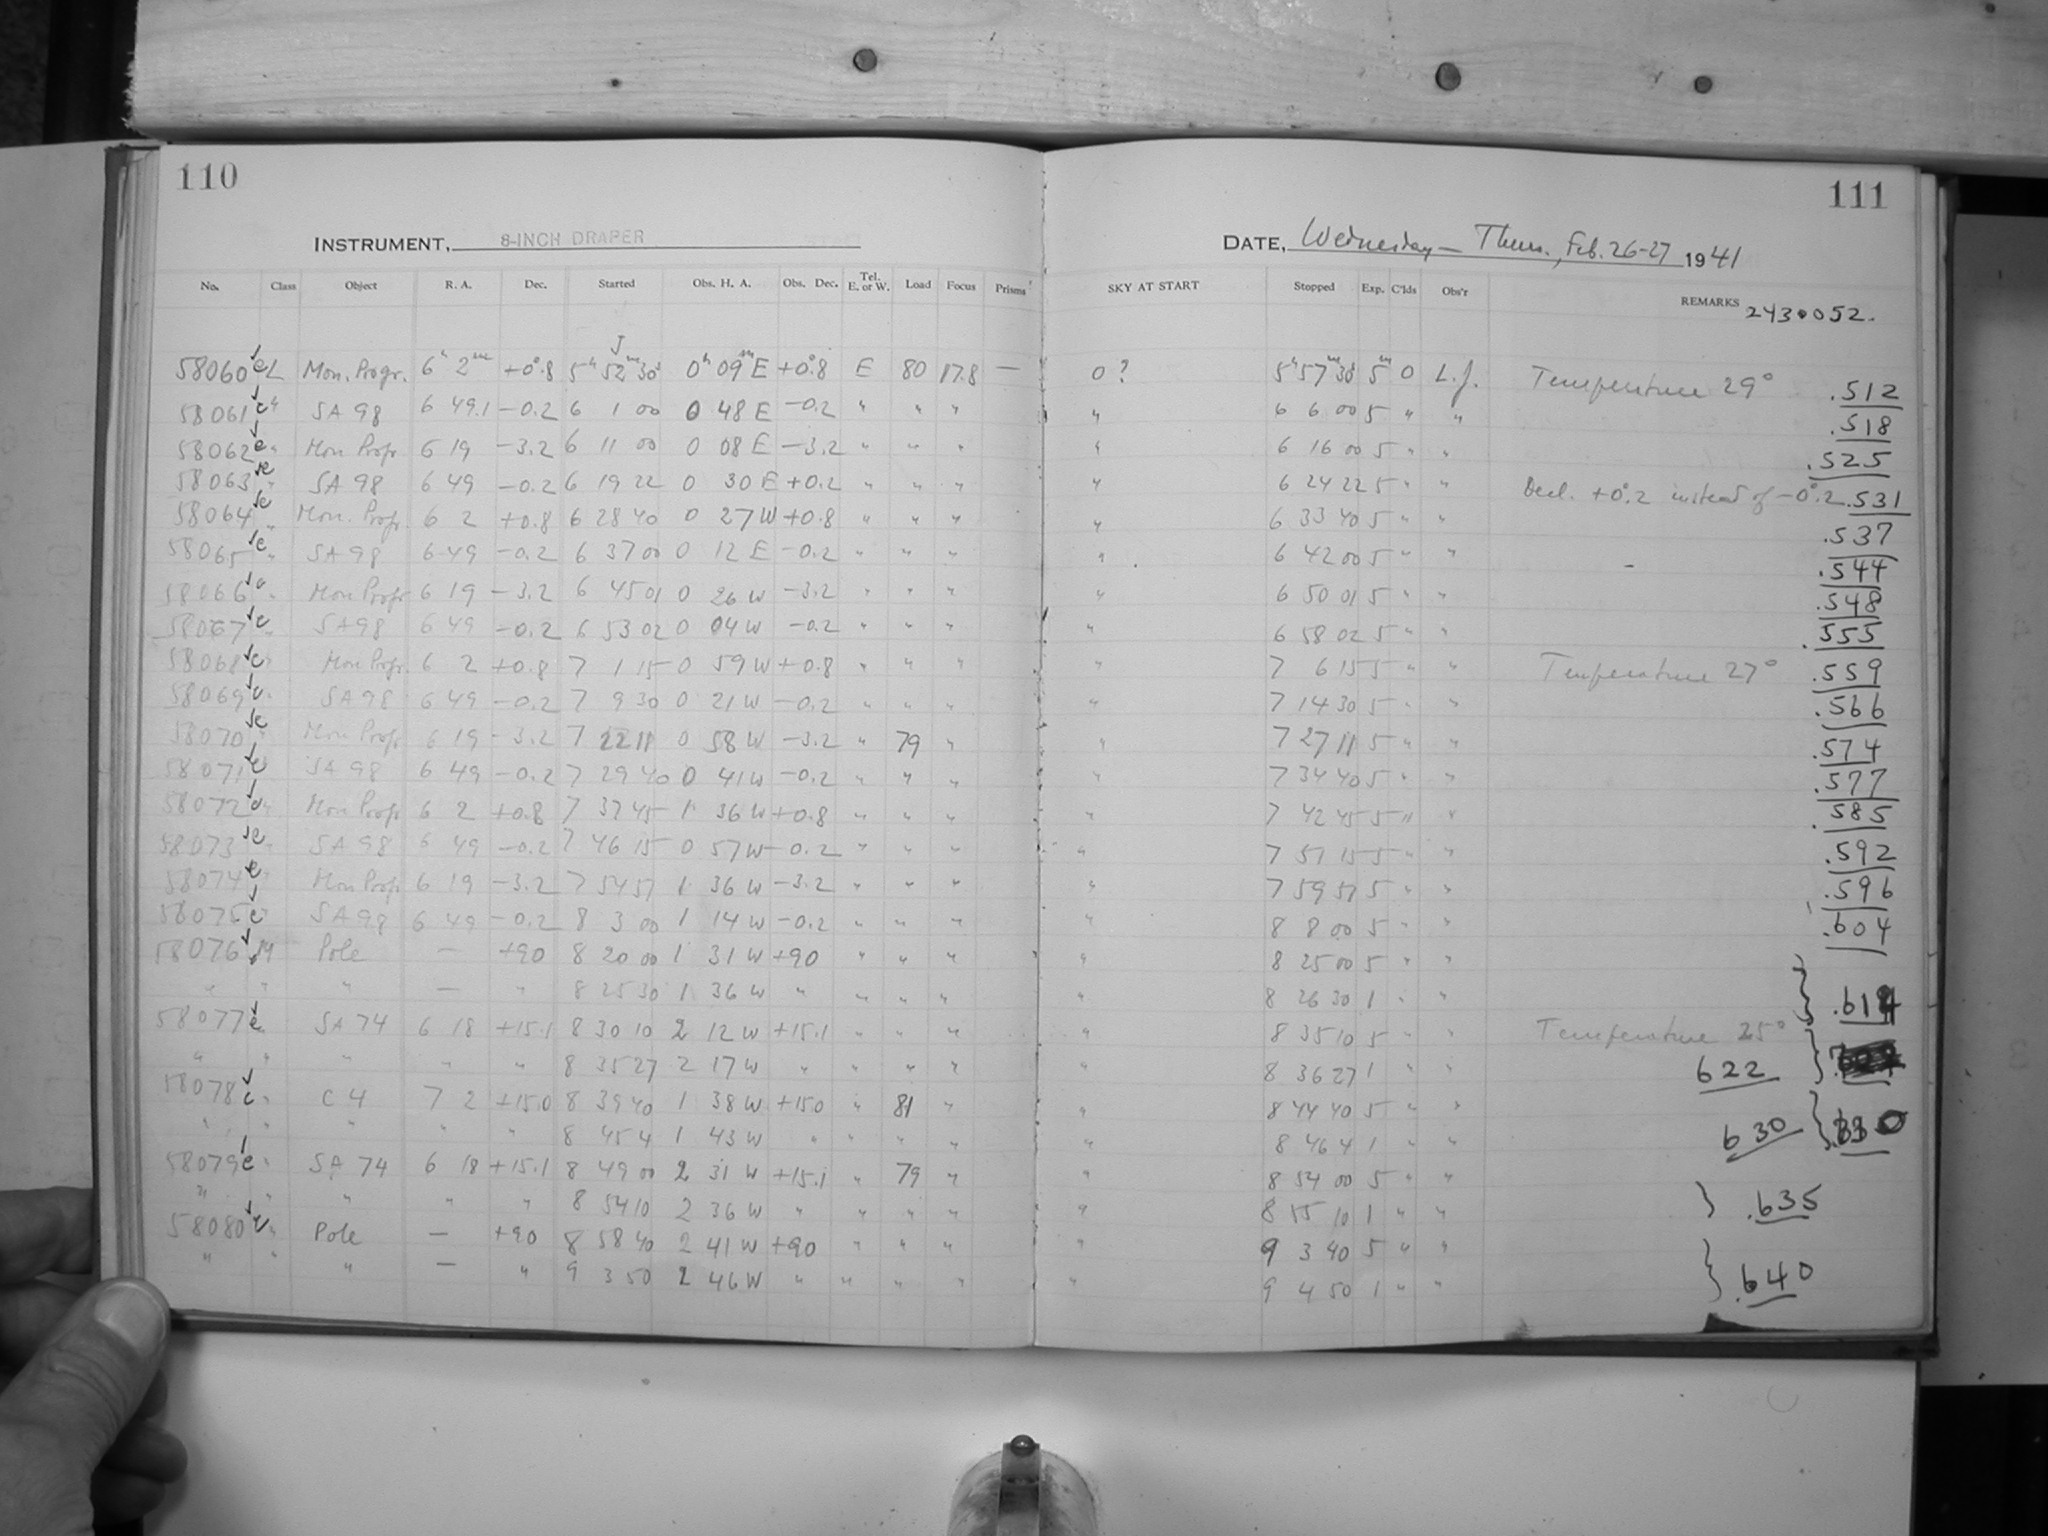 110
111
INSTRUMENT, 8-INCH DRAPER
DATE, Wednesday – Thurs., Feb. 26-27 1941
No. Class Object R. A. Dec. Started Obs. H. A. Obs. Dec. Tel. E. or W. Load Focus Prisms SKY AT START Stopped Exp. C'lds Obs'r REMARKS
2430052.
58060 eL Mon. Progr. 6h 2m +0°.8 5h 52m 30s 0h 09m E +0°.8 E 80 17.8 — 0? 5h 57m 30s 5m 0 L.J. Temperature 29° .512
58061 e " SA 98 6 49.1 –0.2 6 1 00 0 48 E –0.2 " " " " 6 6 00 5 " " .518
58062 e " Mon Progr. 6 19 –3.2 6 11 00 0 08 E –3.2 " " " " 6 16 00 5 " " .525
58063 e " SA 98 6 49 –0.2 6 19 22 0 30 E +0.2 " " " " 6 24 22 5 " " Decl. +0°.2 instead of –0°.2 .531
58064 e " Mon. Progr. 6 2 +0.8 6 28 40 0 27 W +0.8 " " " " 6 33 40 5 " " .537
58065 e " SA 98 6 49 –0.2 6 37 00 0 12 E –0.2 " " " " 6 42 00 5 " " .544
58066 e " Mon Progr 6 19 –3.2 6 45 01 0 26 W –3.2 " " " " 6 50 01 5 " " .548
58067 e " SA 98 6 49 –0.2 6 53 02 0 04 W –0.2 " " " " 6 58 02 5 " " .555
58068 e " Mon Progr. 6 2 +0.8 7 1 15 0 59 W +0.8 " " " " 7 6 15 5 " " Temperature 27° .559
58069 e " SA 98 6 49 –0.2 7 9 30 0 21 W –0.2 " " " " 7 14 30 5 " " .566
58070 e " Mon Progr 6 19 –3.2 7 22 11 0 58 W –3.2 " 79 " " 7 27 11 5 " " .574
58071 e " SA 98 6 49 –0.2 7 29 40 0 41 W –0.2 " " " " 7 34 40 5 " " .577
58072 e " Mon Progr 6 2 +0.8 7 37 45 1 36 W +0.8 " " " " 7 42 45 5 " " .585
58073 e " SA 98 6 49 –0.2 7 46 15 0 57 W –0.2 " " " " 7 51 15 5 " " .592
58074 e " Mon Progr 6 19 –3.2 7 54 57 1 36 W –3.2 " " " " 7 59 57 5 " " .596
58075 e " SA 98 6 49 –0.2 8 3 00 1 14 W –0.2 " " " " 8 8 00 5 " " .604
58076 Pole — +90 8 20 00 1 31 W +90 " " " " 8 25 00 5 " "
" " " — " 8 25 30 1 36 W " " " " " 8 26 30 1 " " .614
58077 e SA 74 6 18 +15.1 8 30 10 2 12 W +15.1 " " " " 8 35 10 5 " " Temperature 25°
" " " " " 8 35 27 2 17 W " " " " " 8 36 27 1 " " 622
58078 e " C 4 7 2 +15.0 8 39 40 1 38 W +15.0 " 81 " " 8 44 40 5 " "
" " " " " 8 45 4 1 43 W " " " " " 8 46 4 1 " " 630
58079 e " SA 74 6 18 +15.1 8 49 00 2 31 W +15.1 " 79 " " 8 54 00 5 " "
" " " " " 8 54 10 2 36 W " " " " " 8 55 10 1 " " .635
58080 e " Pole — +90 8 58 40 2 41 W +90 " " " " 9 3 40 5 " "
" " " — " 9 3 50 2 46 W " " " " " 9 4 50 1 " " .640